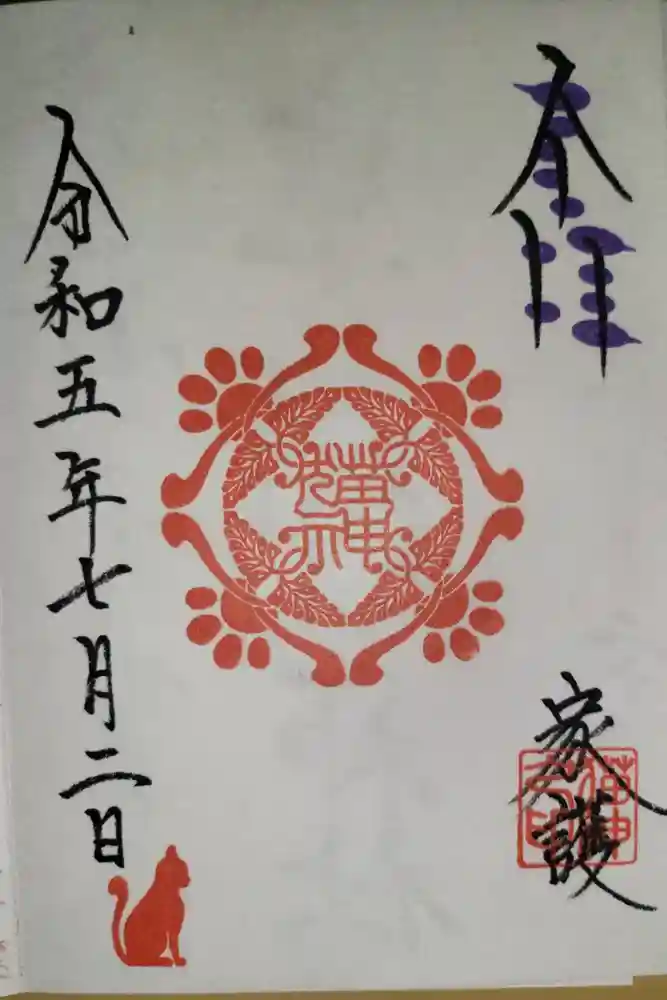 奉拝
家護
猫神
令和五年七月二日